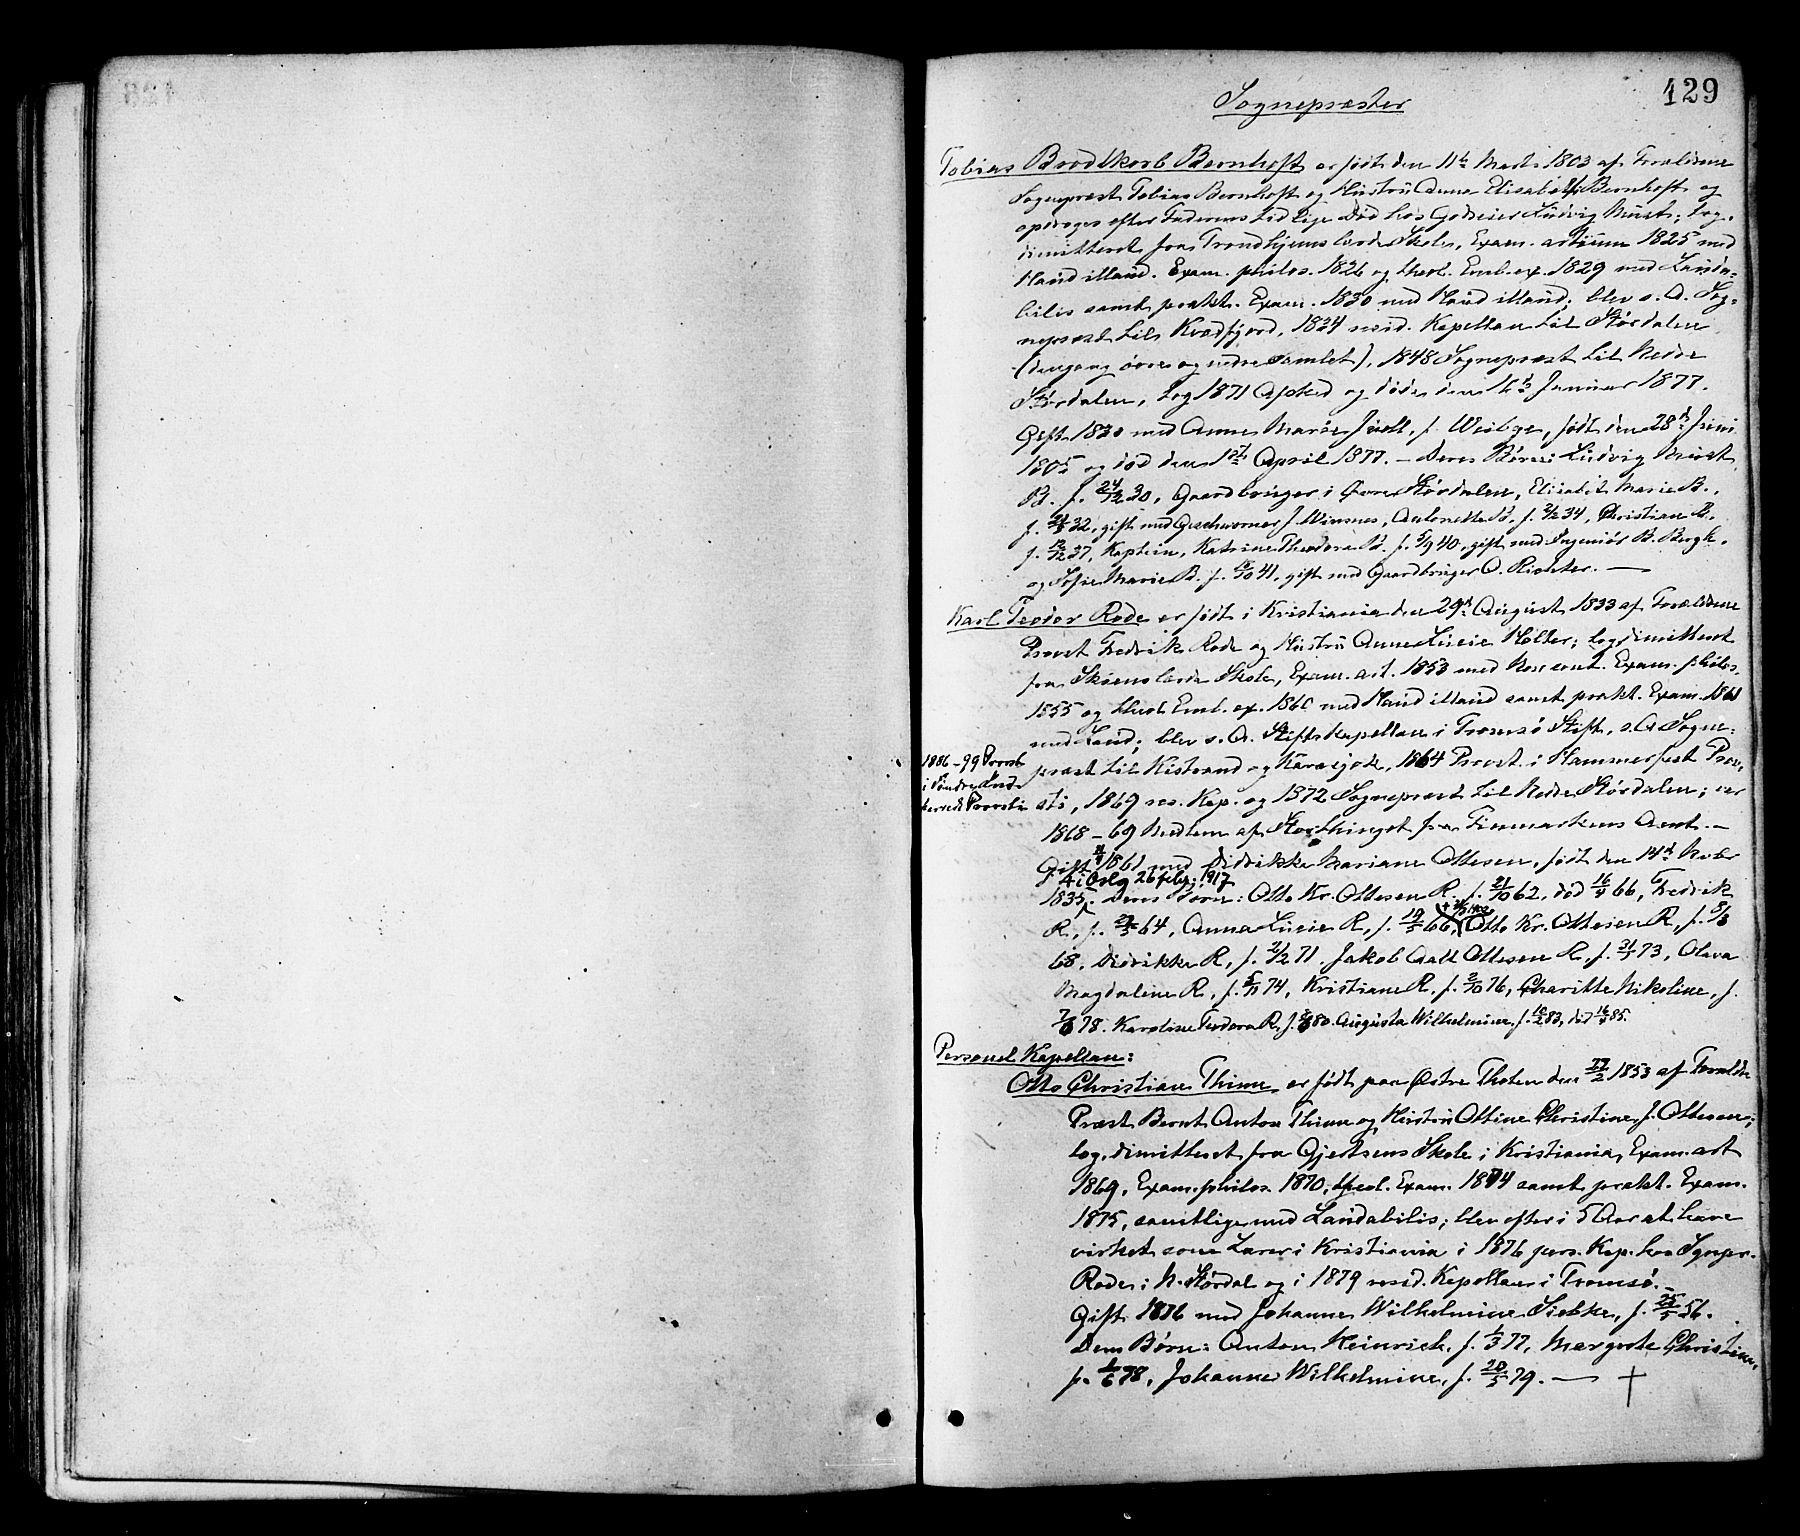 129
Sognepræster
Tobias Brodtkorb Bernhoft er født den 11te Marts 1803 af Forældrene
Sogneprest Tobias Bernhoft og Hustru Anna Elisabeth Bernhoft og
opdroges efter Faderens tidlige Død hos Godseier Ludvig Must; bog.
dimitteret fra Trondhjems lærde Skole, Exam. artium 1825 med
Haud illaud. Exam. philos. 1826 og theol. Emb. ex. 1829 med Lauda=
bilis samt prakt. Exam. 1830 med Haud illaud; blev s. A. Sog=
neprest til Kvædfjord, 1834 resid. Kapellan til Størdalen
(dengang øvre og nedre samlet), 1848 Sogneprest til Nedre
Størdalen, tog 1871 Afsked og døde den Januar 1877.
Gift 1830 med Anne Marie Juell, f. Weibye, født den 28de Juni
1805 og død den 1ste April 1877. — Deres Børn: Ludvig Must
B. f. 24/12 30, Gaardbruger i Øvre Størdalen, Elisabet Marie B.,
f. 32, gift med Geschworner J. Winsnes, Antonette B. f. 2/12 34, Christian B.,
f. 12/12 37, Kaptein, Katrine Theodora B. f. 5/9 40, gift med Ingeniør B. Bergh,
og Sofie Marie B. f. 41, gift med Gaardbruger O. Richter. —
Karl Teodor Rode er født i Kristiania den 29de August 1833 af Forældrene
Provst Fredrik Rode og Hustru Anne Lucie Holter; bog. dimitteret
fra Skiens lærde Skole, Exam. art. 1853 med Non cont. Exam. philos.
1855 og theol. Emb. ex. 1860 med Haud illaud samt prakt. Exam. 1861
med Laud; blev s. A. Stiftskapellan i Tromsø Stift, s. A. Sogne=
1886–99 Provst
i Søndre Ind-
herreds Provsti
præst til Kistrand og Karasjok, 1864 Provst i Hammerfest Prov=
sti, 1869 res. Kap. og 1872 Sogneprest til Nedre Størdalen; var
1868–69 Medlem af Storthinget fra Finmarkens Amt. —
Gift 1861 med Didrikke Mariane Ottesen, født den 14de Novbr
i Oslo 26 febr. 1917
1835. Deres Børn: Otto Kr. Ottesen R. f. 21/10 62, død 66, Fredrik
R., f. 64, Anna Lucie R., f. 66, Otto Kr. Ottesen R., f. 8/3
1902
68, Didrikke R., f. 2/2 71, Jakob Aall Ottesen R. f. 73, Olava
Magdalene R., f. 5/11 74, Kristiane R., f. 2/10 76, Charitte Nikoline, f.
78. Karoline Teodora R. f. 80. Augusta Wilhelmine, f. 83, død 85.
Personel Kapellan:
Otto Christian Thime er født paa Østre Thoten den 27/2 1853 af Forældre
Præst Bernt Anton Thime og Hustru Ottine Christine f. Ottesen;
bog. dimitteret fra Gjertsens Skole i Kristiania, Exam. art
1869, Exam. philos. 1870, theol. Exam. 1874 samt prakt. Exam.
1875, samtlige med Laudabilis; blev efter i 5 Aar at have
virket som Lærer i Kristiania i 1876 pers. Kap. hos Sognepr.
Rode i N. Størdal og i 1879 resid. Kapellan i Tromsø. —
Gift 1876 med Johanne Wilhelmine Siebke, f. 25/5 56.
Dem Børn: Anton Heinrich, f. 1/3 77, Margrete Christine,
f. 1/6 78, Johanne Wilhelmine, f. 20/5 79. —